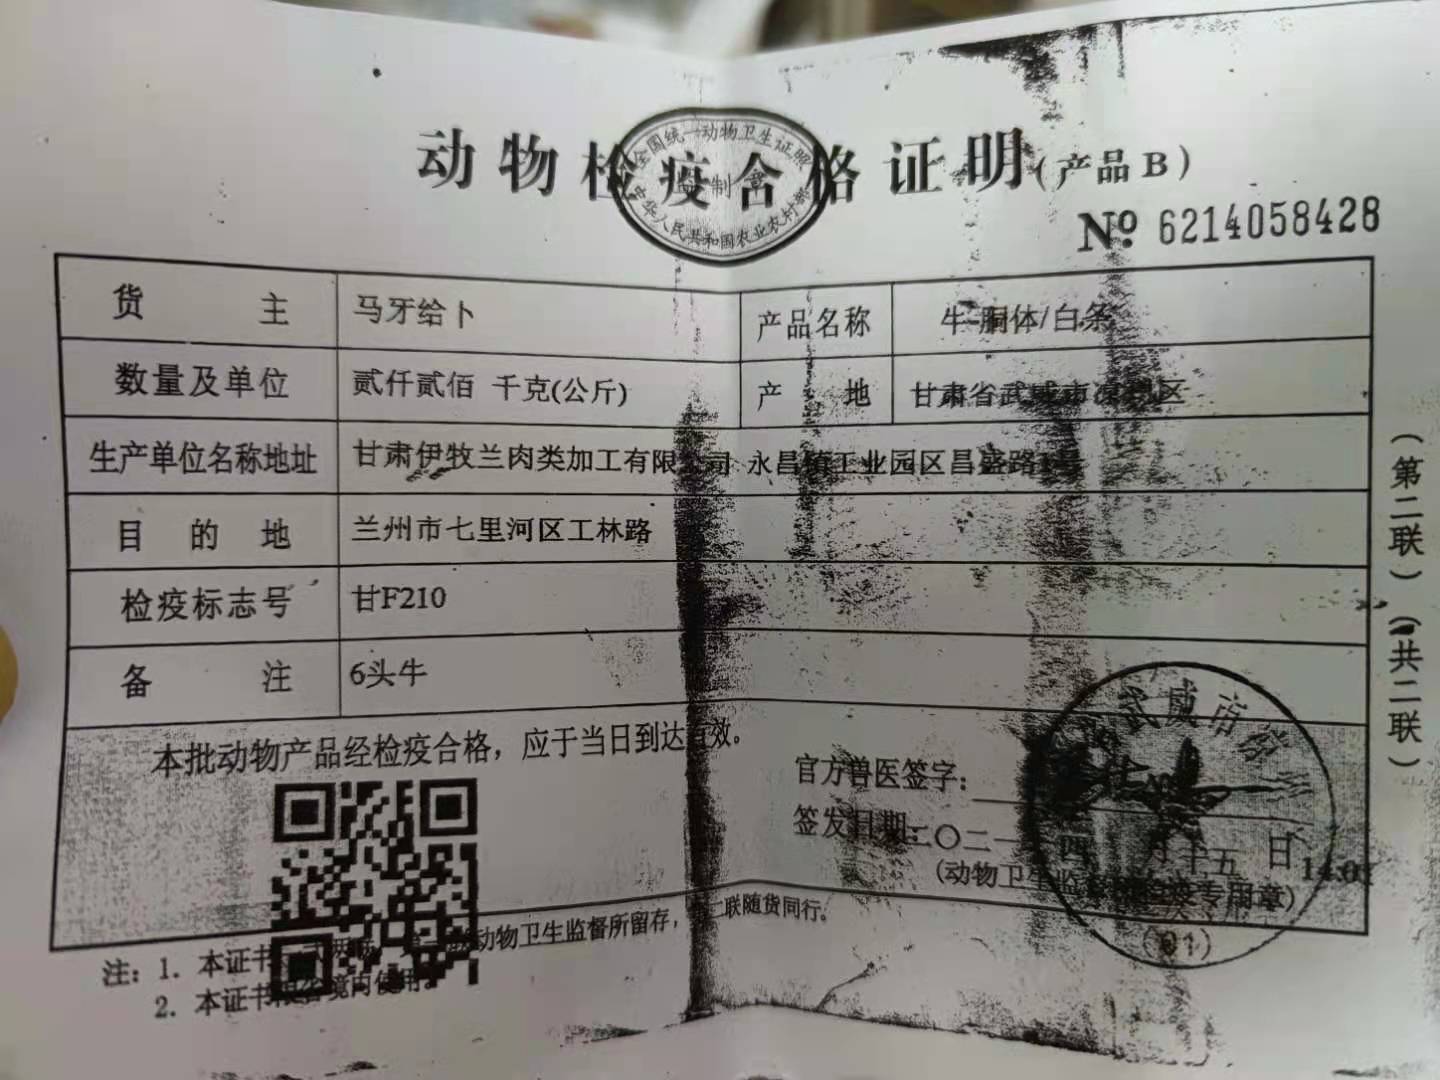 动物检疫合格证明(产品B)
全国统一动物卫生证照
制章
中华人民共和国农业农村部
Nº 6214058428
货主 马牙给卜 产品名称 牛-胴体/白条
数量及单位 贰仟贰佰 千克(公斤) 产地 甘肃省武威市凉州区
生产单位名称地址 甘肃伊牧兰肉类加工有限公司 永昌镇工业园区昌盛路1号
目的地 兰州市七里河区工林路
检疫标志号 甘F210
备注 6头牛
本批动物产品经检疫合格,应于当日到达有效。
官方兽医签字:
签发日期:二〇二一 四月十五日
(动物卫生监督 检疫专用章)
武威市
注:1. 本证书一式两联,第一联动物卫生监督所留存,第二联随货同行。
2. 本证书限省境内使用。
(第二联)(共二联)